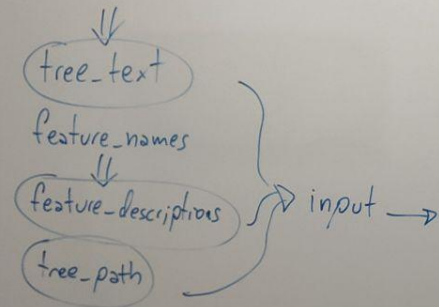 tree_text
feature_names
feature_descriptions
input
tree_path